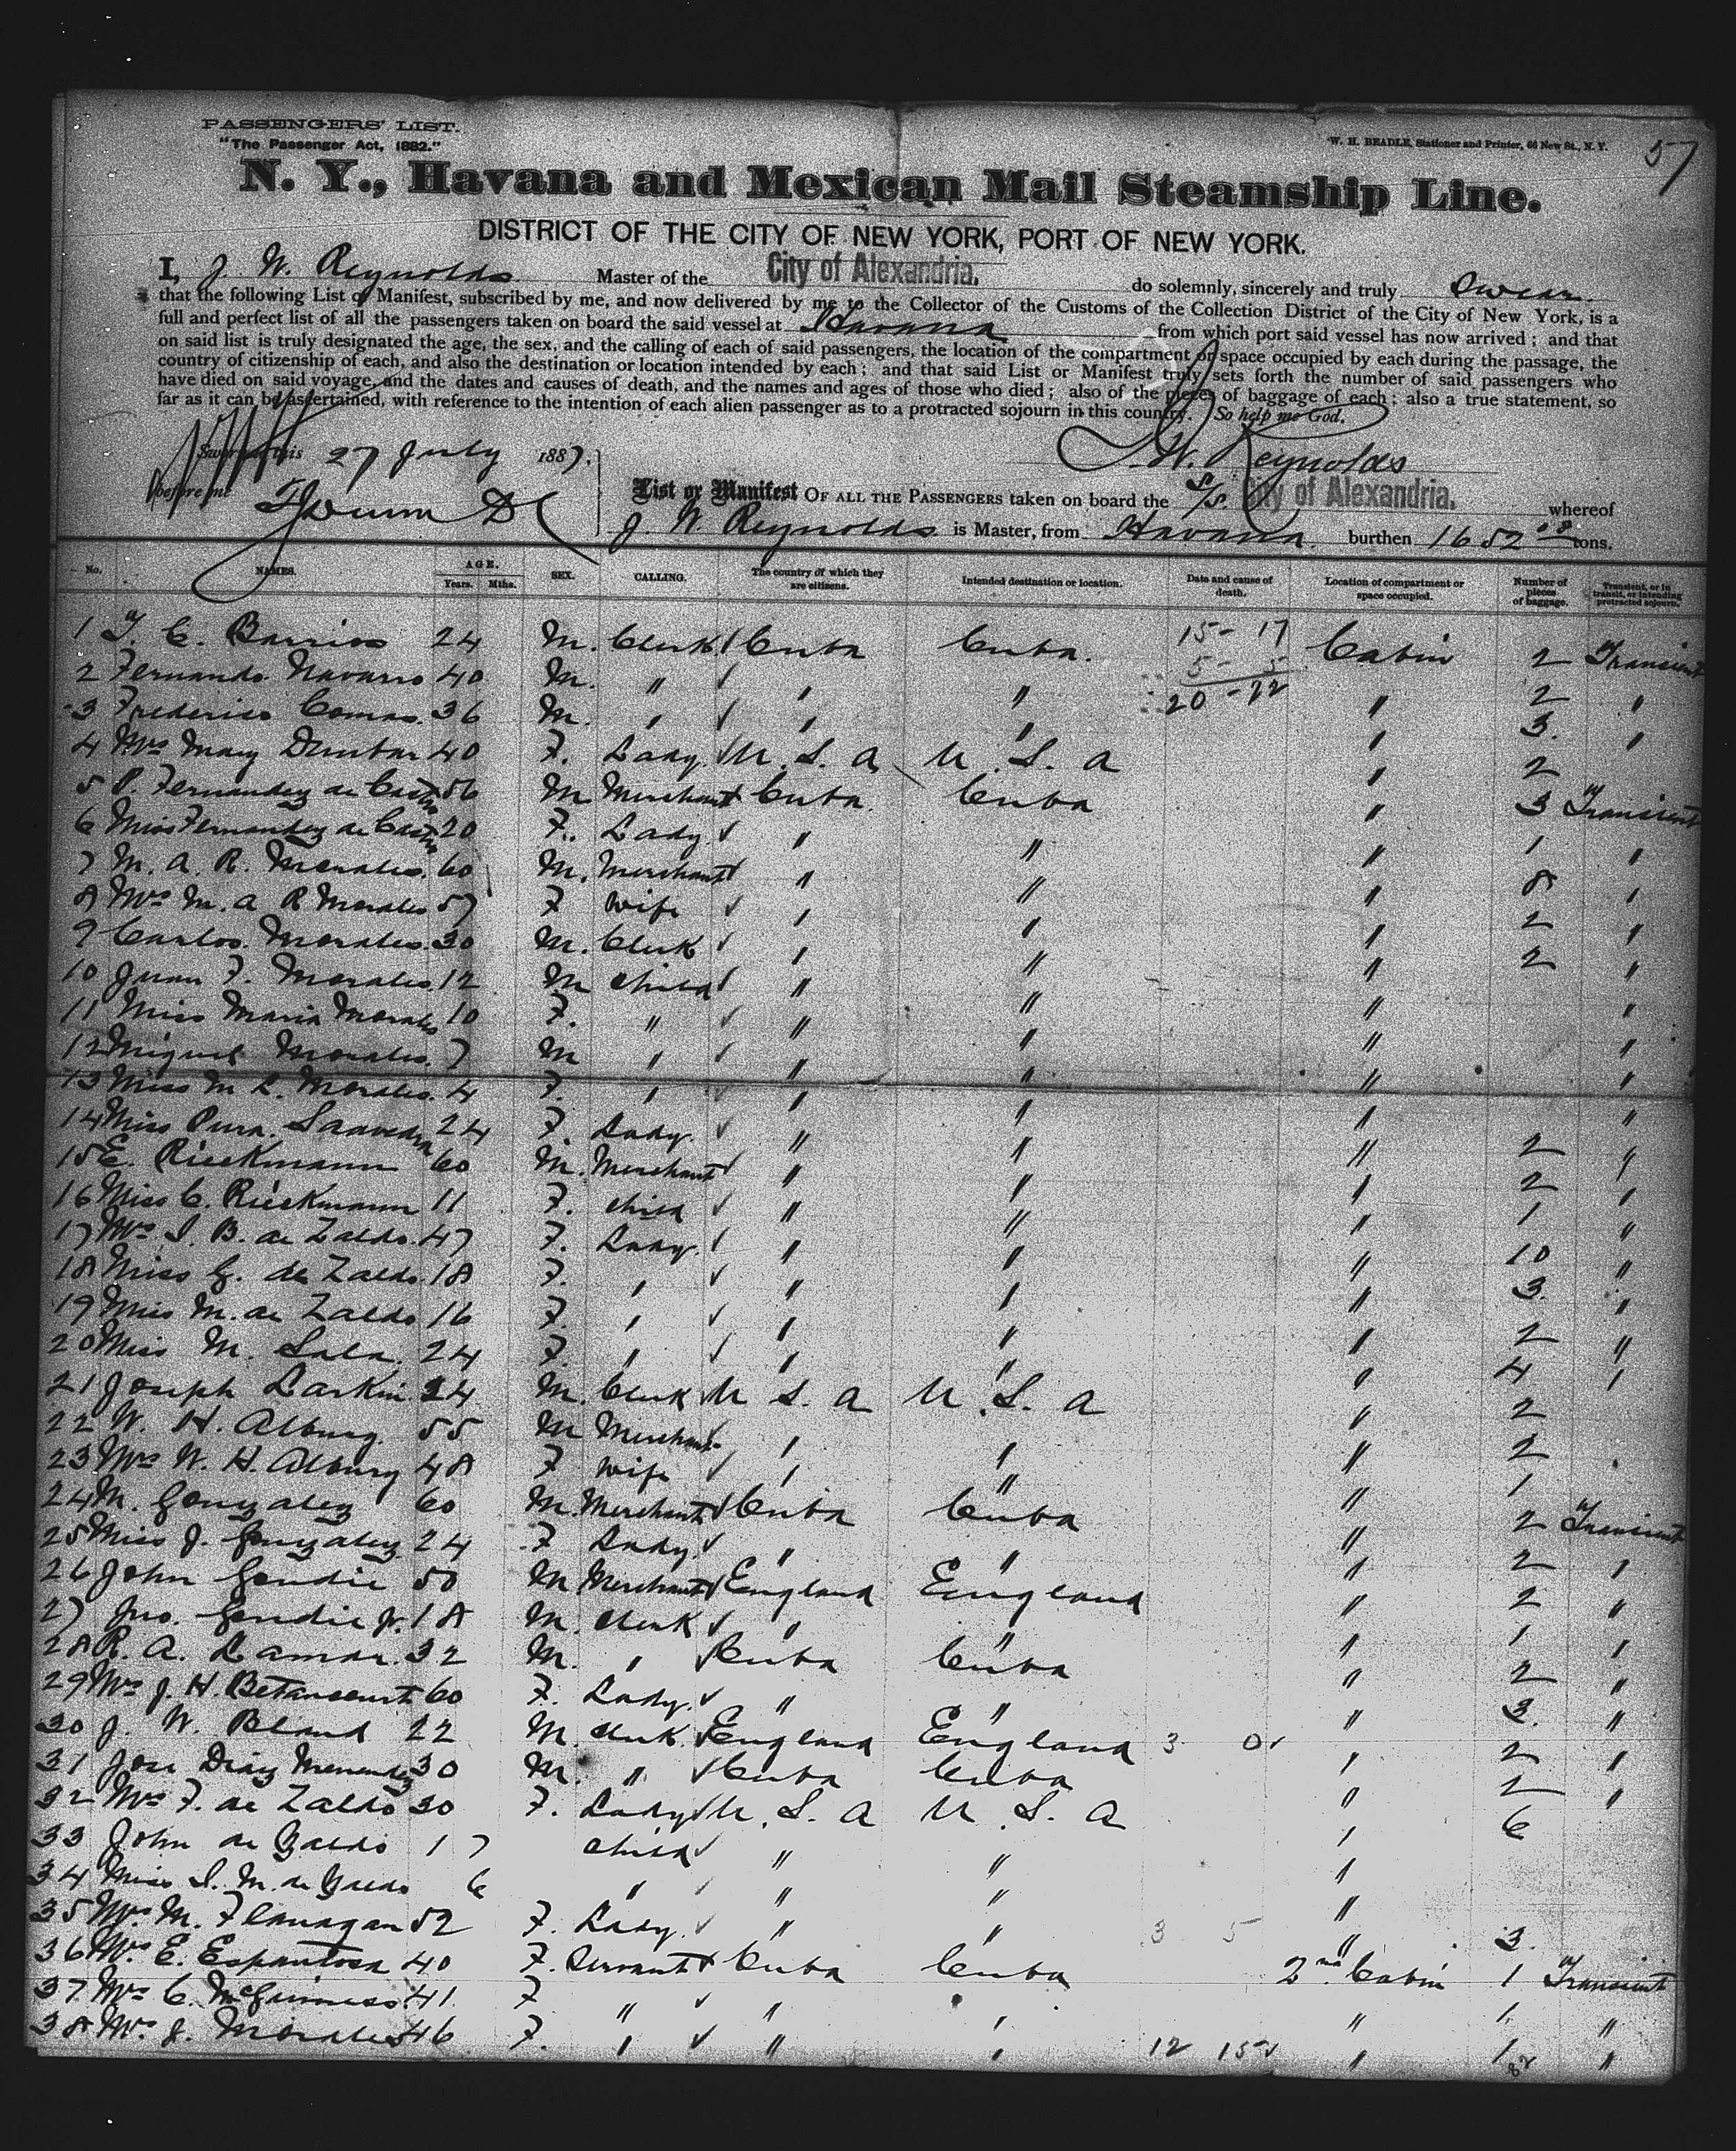 PASSENGERS' LIST.
"The Passenger Act, 1882."
W. H. BEADLE, Stationer and Printer, 66 New St., N. Y.
57
N. Y., Havana and Mexican Mail Steamship Line.
DISTRICT OF THE CITY OF NEW YORK, PORT OF NEW YORK.
I, J. W. Reynolds Master of the City of Alexandria. do solemnly, sincerely and truly swear
that the following List or Manifest, subscribed by me, and now delivered by me to the Collector of the Customs of the Collection District of the City of New York, is a
full and perfect list of all the passengers taken on board the said vessel at Havana from which port said vessel has now arrived; and that
on said list is truly designated the age, the sex, and the calling of each of said passengers, the location of the compartment or space occupied by each during the passage, the
country of citizenship of each, and also the destination or location intended by each; and that said List or Manifest truly sets forth the number of said passengers who
have died on said voyage, and the dates and causes of death, and the names and ages of those who died; also of the pieces of baggage of each; also a true statement, so
far as it can be ascertained, with reference to the intention of each alien passenger as to a protracted sojourn in this country. So help me God.
Sworn this 27 July 1887.
J. W. Reynolds
before me
List or Manifest OF ALL THE PASSENGERS taken on board the S/S. City of Alexandria. whereof
J. W. Reynolds is Master, from Havana. burthen 1652 08 tons.
No. NAMES. AGE. Years. Mths. SEX. CALLING. The country of which they are citizens. Intended destination or location. Date and cause of death. Location of compartment or space occupied. Number of pieces of baggage. Transient, or in transit, or intending protracted sojourn.
1 C. Barrios 24 M. Clerk Cuba Cuba. 15 - 17 Cabin 2 Transient
2 Fernando Navarro 40 M. " " " 5 - 5 " 2 "
3 Frederico Comas. 36 M. " " " 20 - 22 " 3. "
4 Mrs Mary Dunbar 40 F. Lady. U. S. A U. S. A " 2
5 P. Fernandez de Castro 56 M Merchant Cuba Cuba " 3 Transient
6 Miss Fernandez de Castro 20 F. Lady " " " 1 "
7 M. A. R. Morales. 60 M. Merchant " " " 8 "
8 Mrs M. A R Morales 57 F Wife " " " 2 "
9 Carlos. Morales. 30 M. Clerk " " " 2 "
10 Juan F. Morales. 12 M child " " " "
11 Miss Maria Morales 10 F. " " " " "
12 Miguel Morales. 7 M " " " " "
13 Miss M L. Morales. 4 F. " " " " "
14 Miss Pura. Saavedra 24 F. Lady " " " 2 "
15 E. Rieckmann 60 M. Merchant " " " 2 "
16 Miss C. Rieckmann 11 F. child " " " 1 "
17 Mrs. S. B. de Zaldo. 47 F. Lady. " " " 10 "
18 Miss G. de Zaldo. 18 F. " " " " 3. "
19 Miss M. de Zaldo 16 F. " " " " 2 "
20 Miss M. Sala. 24 F. " " " " 4 "
21 Joseph Larkin 24 M. Clerk U S. A U. S. A " 2
22 W. H. Albury. 55 M Merchant " " " 2
23 Mrs W. H. Albury 48 F Wife " " " 1
24 M. Gonzalez 60 M. Merchant Cuba Cuba " 2 Transient
25 Miss J. Gonzalez. 24 F Lady. " " " 2 "
26 John Goudie 50 M Merchant England England " 2 "
27 Jno. Goudie Jr. 18 M. clerk " " " 1 "
28 R. A. Lamar. 32 M. " Cuba Cuba " 2 "
29 Mrs J. H. Betancourt 60 F. Lady. " " " 3. "
30 J. W. Bland 22 M. clerk England England 3 0 " 2 "
31 Jose Diaz Menendez 30 M. " Cuba Cuba " 2 "
32 Mrs F. de Zaldo 30 F. Lady U. S. A U. S. A " 6
33 John de Zaldo 1 7 child " " "
34 Miss S. M. de Zaldo 6 " " " "
35 Mrs M. Flanagan 52 F. Lady. " " 3 5 " 3.
36 Mrs. E. Espantosa 40 F. Servant Cuba Cuba 2nd Cabin 1 Transient
37 Mrs C. McGuinness 41. F " " " " 1 "
38 Mrs. J. Morales 46 F. " " " 12 15 " 1 "
82